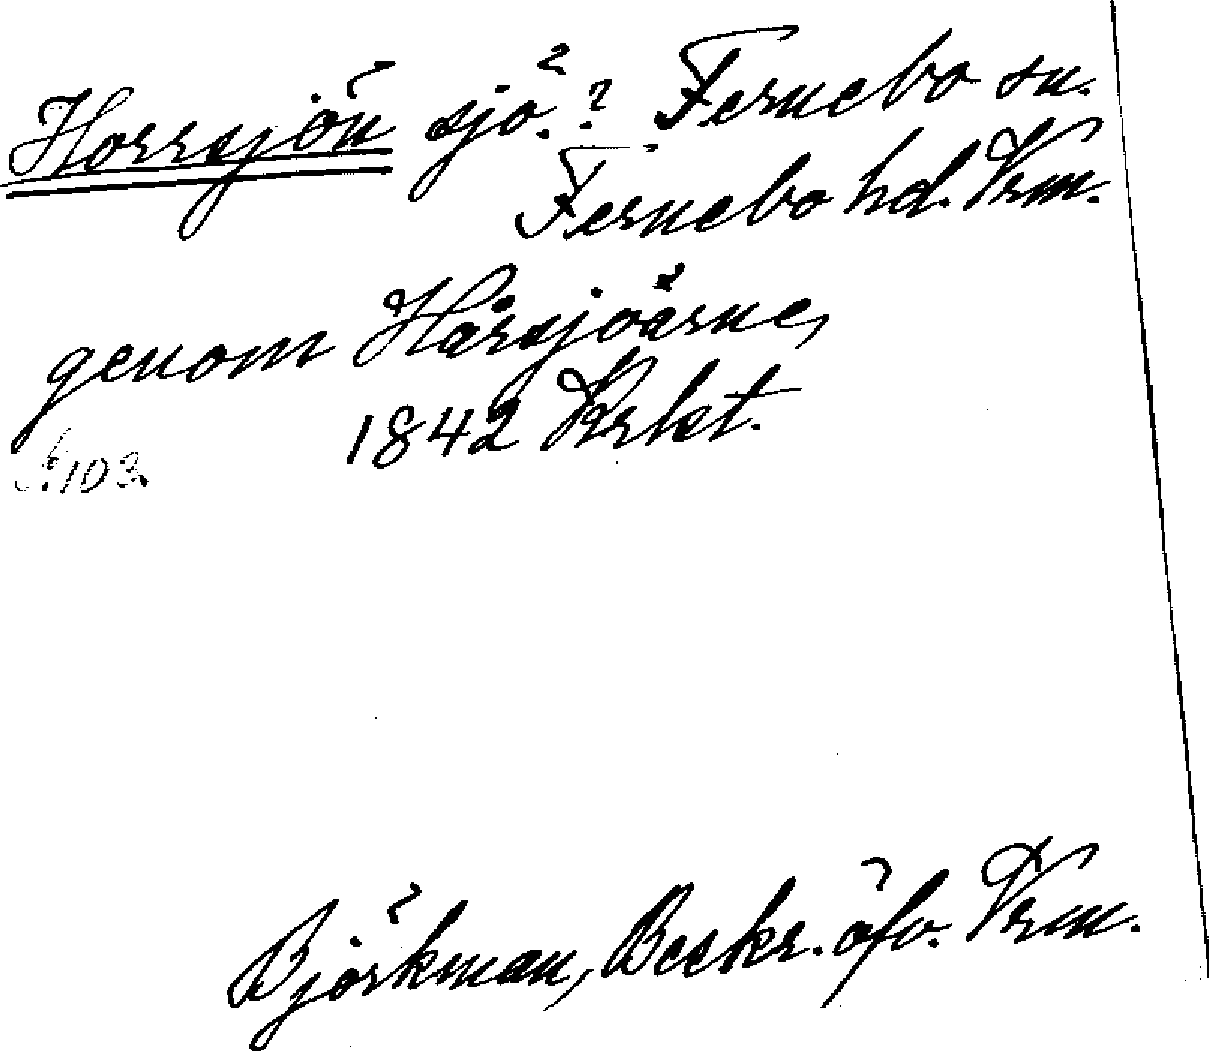 Horrsjön sjö.? Fernebo sn.
Fernebo hd. Vrm.
genom Hårsjöarne,
1842 Krkt.
S. 103.
Björkman, Beskr. öfv. Vrm.